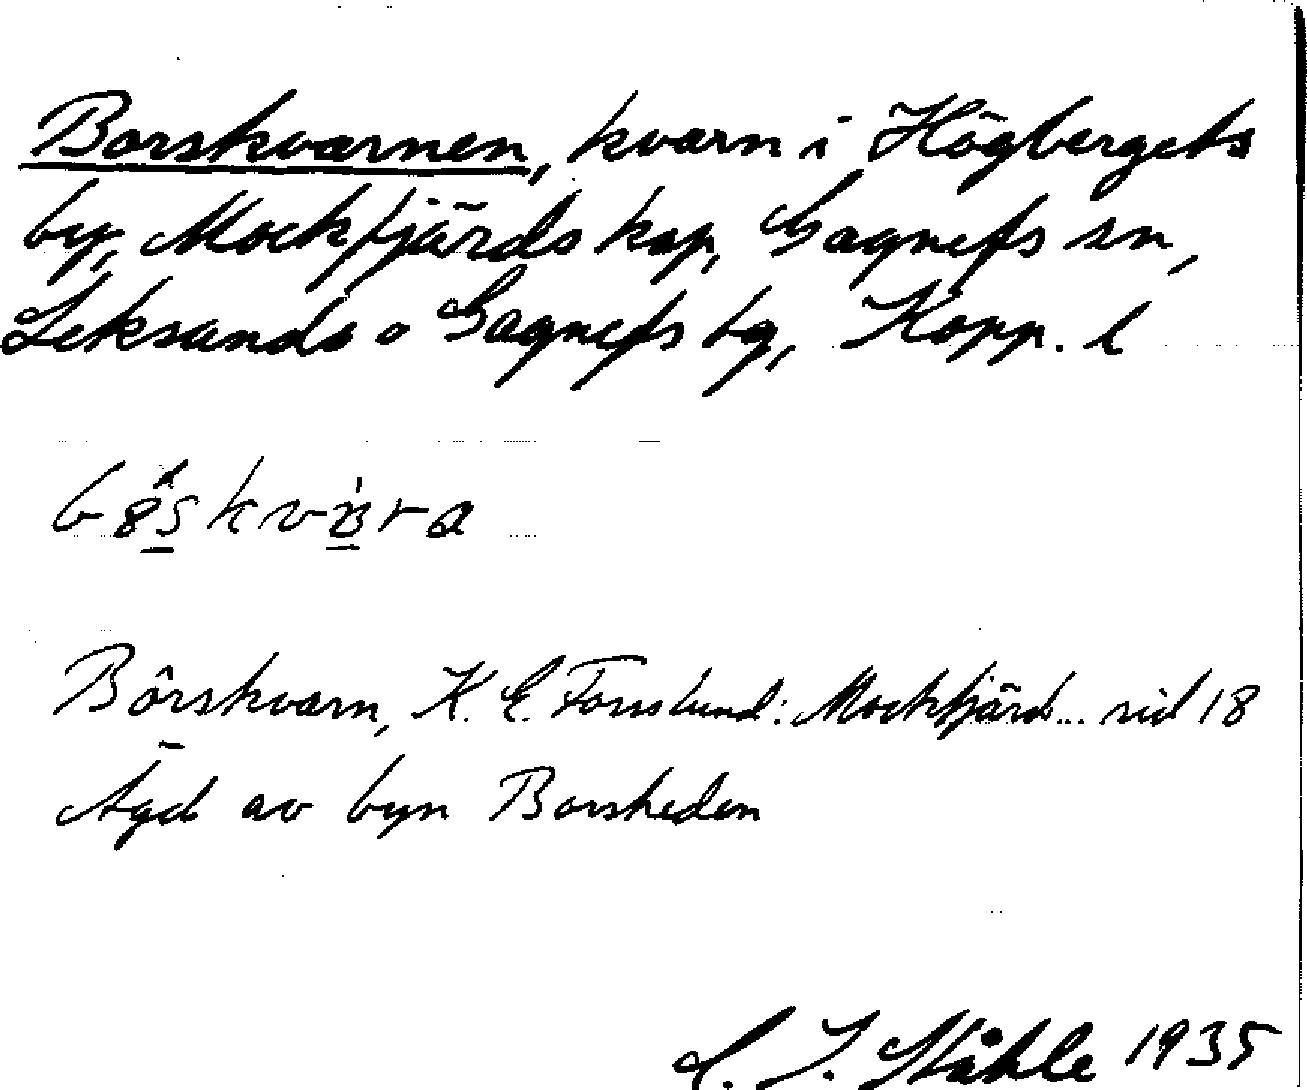 Borskvarnen, kvarn i Högbergets
by, Mockfjärds kap, Gagnefs sn,
Leksands o Gagnefs tg, Kopp. l
Bôrskvarn, K. E. Forsslund: Mockfjärd... sid 18
Ägd av byn Borsheden
C. I. Ståhle 1935